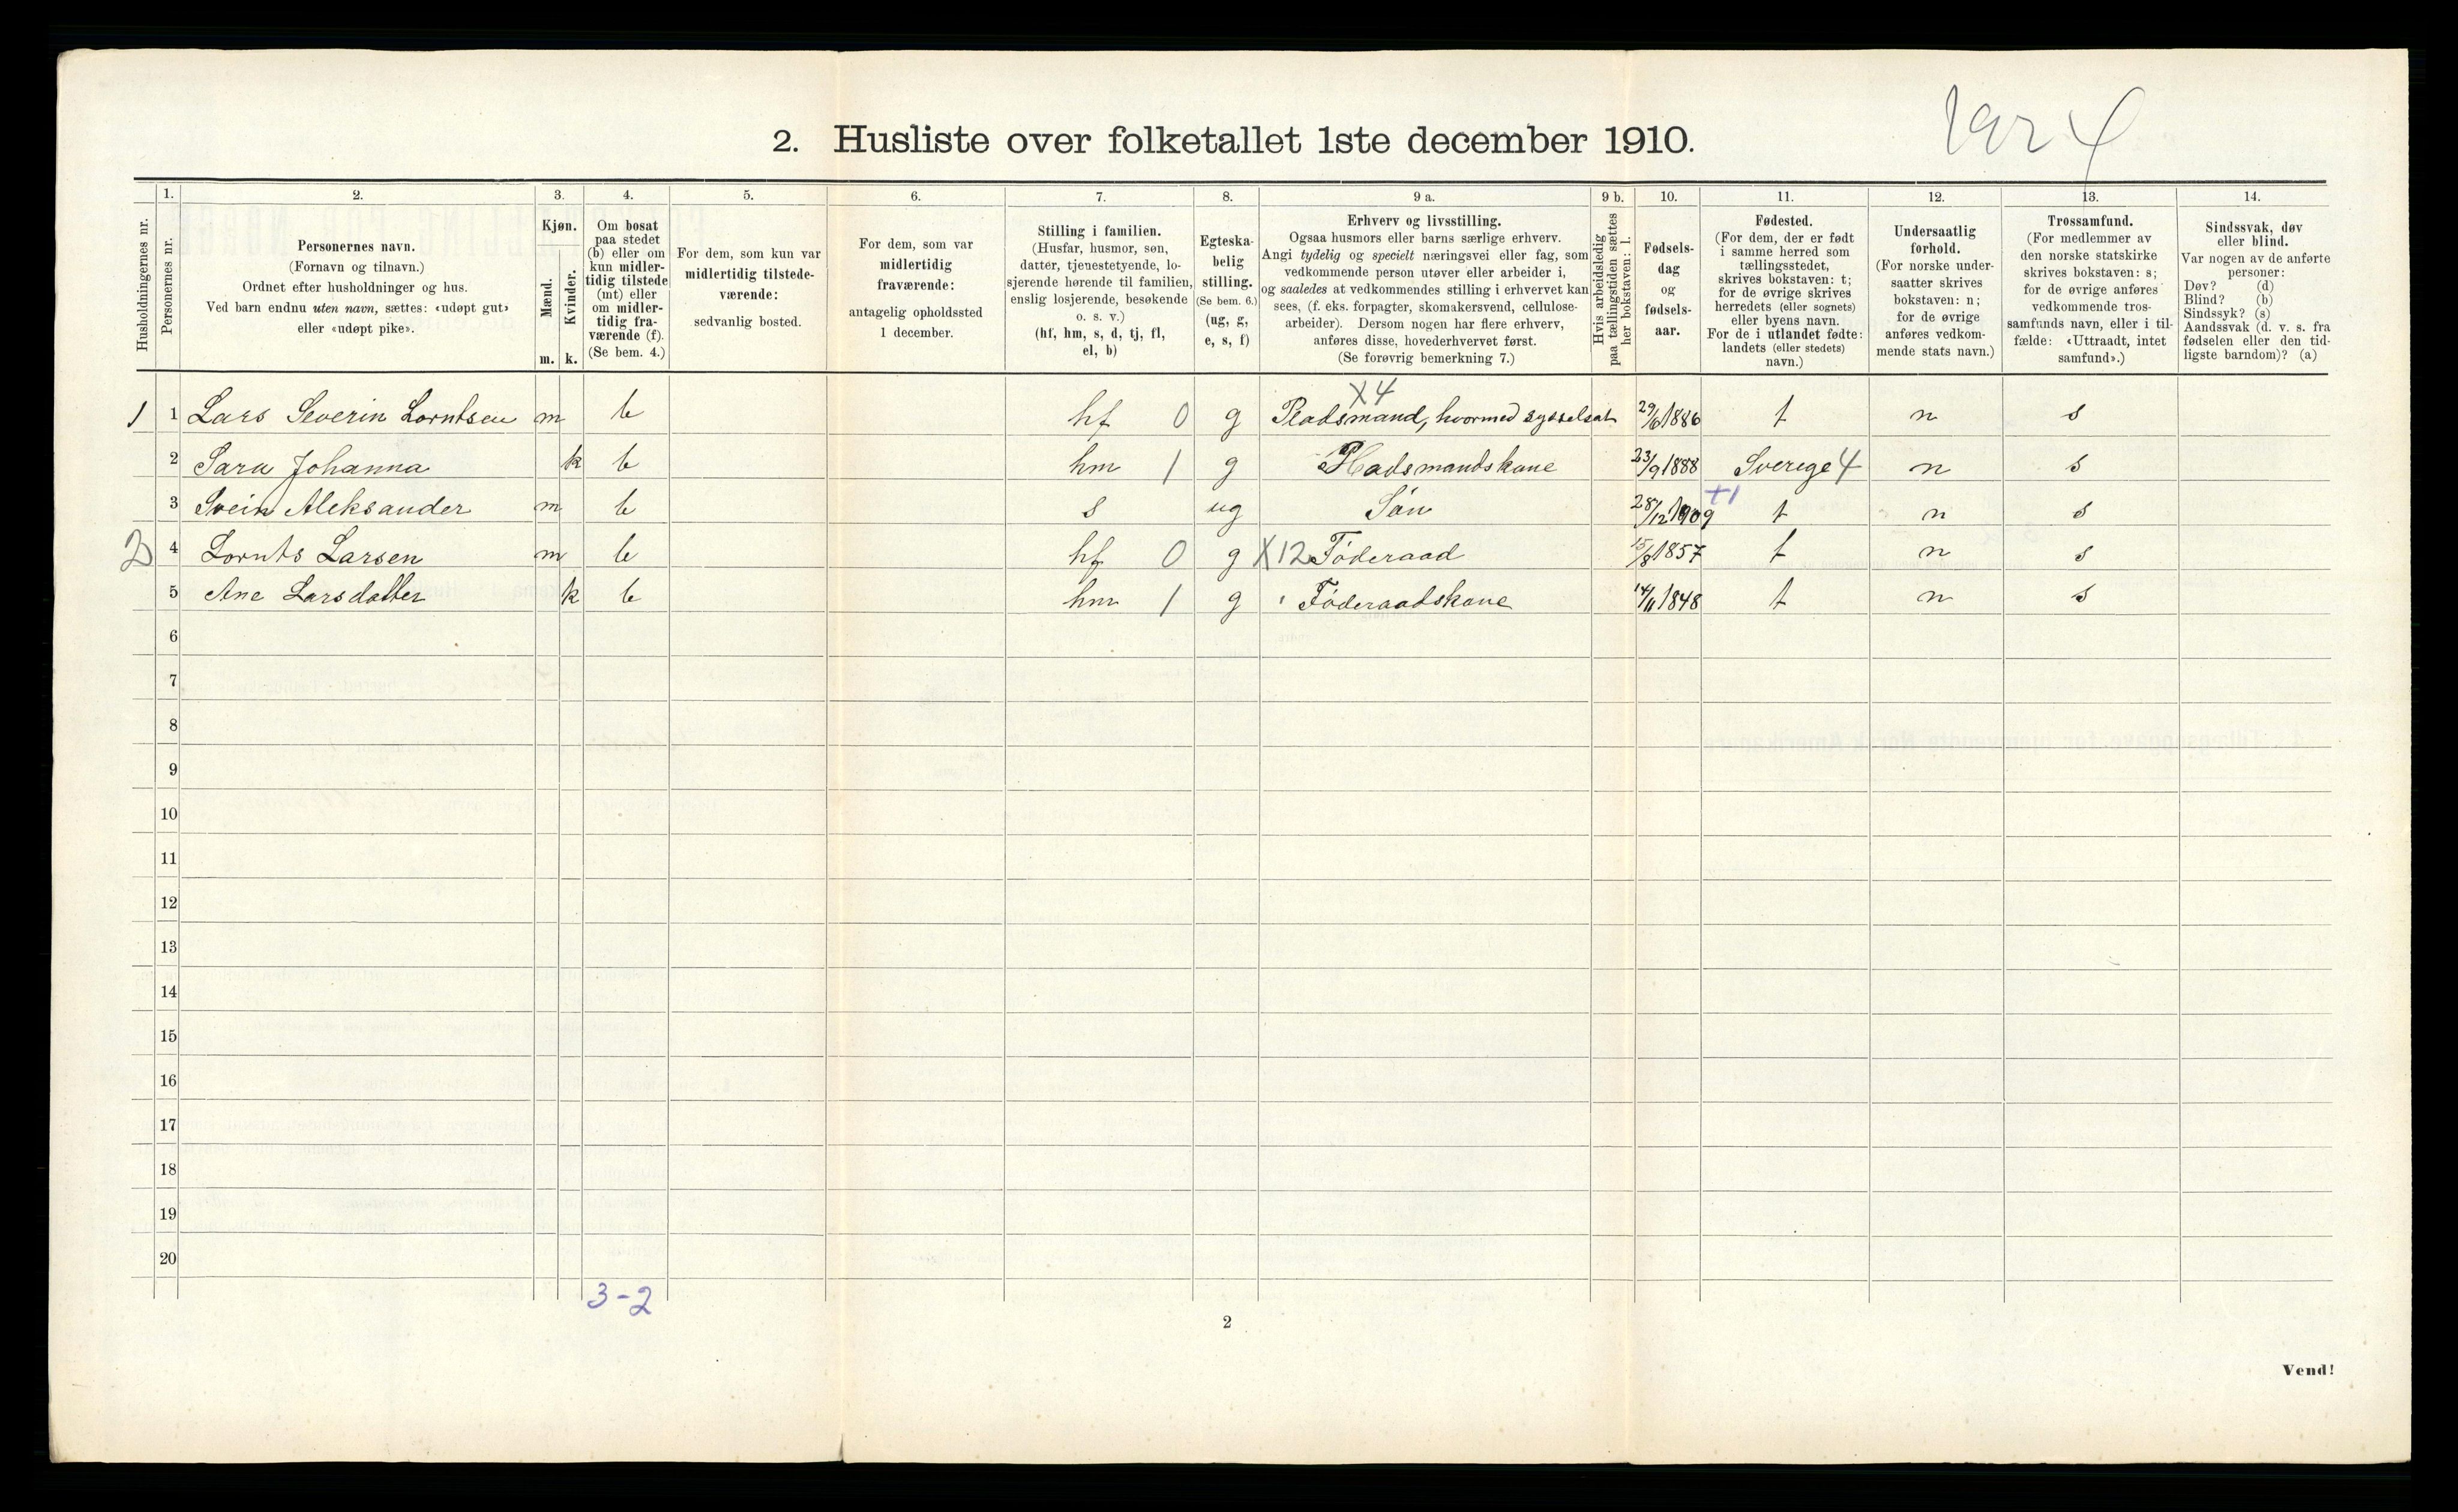 192 4
2. Husliste over folketallet 1ste december 1910.
Husholdningernes nr.
1. Personernes nr.
2. Personernes navn. (Fornavn og tilnavn.) Ordnet efter husholdninger og hus. Ved barn endnu uten navn, sættes: «udøpt gut» eller «udøpt pike».
3. Kjøn. Mænd. m. Kvinder. k.
4. Om bosat paa stedet (b) eller om kun midlertidig tilstede (mt) eller om midlertidig fraværende (f). (Se bem. 4.)
5. For dem, som kun var midlertidig tilstedeværende: sedvanlig bosted.
6. For dem, som var midlertidig fraværende: antagelig opholdssted 1 december.
7. Stilling i familien. (Husfar, husmor, søn, datter, tjenestetyende, losjerende hørende til familien, enslig losjerende, besøkende o. s. v.) (hf, hm, s, d, tj, fl, el, b)
8. Egteskabelig stilling. (Se bem. 6.) (ug, g, e, s, f)
9 a. Erhverv og livsstilling. Ogsaa husmors eller barns særlige erhverv. Angi tydelig og specielt næringsvei eller fag, som vedkommende person utøver eller arbeider i, og saaledes at vedkommendes stilling i erhvervet kan sees, (f. eks. forpagter, skomakersvend, cellulosearbeider). Dersom nogen har flere erhverv, anføres disse, hovederhvervet først. (Se forøvrig bemerkning 7.)
9 b. Hvis arbeidsledig paa tællingstiden sættes her bokstaven: l.
10. Fødselsdag og fødselsaar.
11. Fødested. (For dem, der er født i samme herred som tællingsstedet, skrives bokstaven: t; for de øvrige skrives herredets (eller sognets) eller byens navn. For de i utlandet fødte: landets (eller stedets) navn.)
12. Undersaatlig forhold. (For norske undersaatter skrives bokstaven: n; for de øvrige anføres vedkommende stats navn.)
13. Trossamfund. (For medlemmer av den norske statskirke skrives bokstaven: s; for de øvrige anføres vedkommende trossamfunds navn, eller i tilfælde: «Uttraadt, intet samfund».)
14. Sindssvak, døv eller blind. Var nogen av de anførte personer: Døv? (d) Blind? (b) Sindssyk? (s) Aandssvak (d. v. s. fra fødselen eller den tidligste barndom)? (a)
X4
1 1 Lars Severin Lorntsen m b hf 0 g Pladsmand, hvormed sysselsat 29/6 1886 t n s
2 Sara Johanna k b hm 1 g Pladsmandskone 23/9 1888 Sverege 4 n s
+1
3 Svein Aleksander m b s ug Søn 28/12 1909 t n s
2 4 Lornts Larsen m b hf 0 g X12 Føderaad 15/8 1857 t n s
5 Ane Larsdatter k b hm 1 g Føderaadskone 14/11 1848 t n s
6
7
8
9
10
11
12
13
14
15
16
17
18
19
20
3-2
2
Vend!